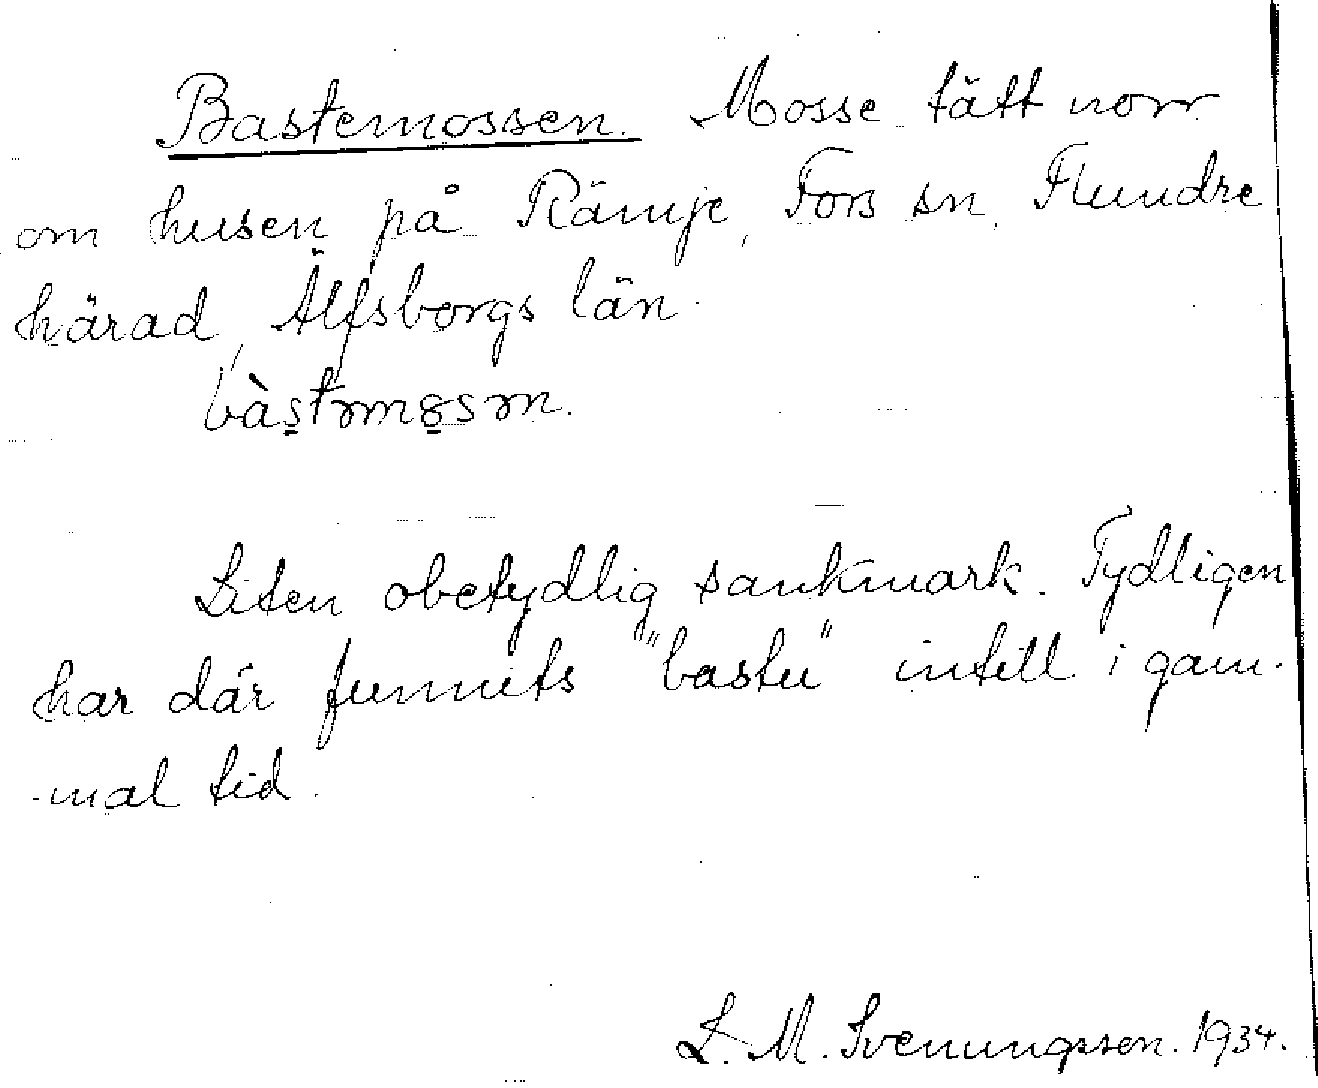 Bastemossen. Mosse tätt norr
om husen på Rämje, Fors sn, Flundre
härad, Älfsborgs län.
bàstəmo̯sən.
Liten obetydlig sankmark. Tydligen
har där funnits "bastu" intill i gam-
-mal tid.
L. M. Svenungsson. 1934.